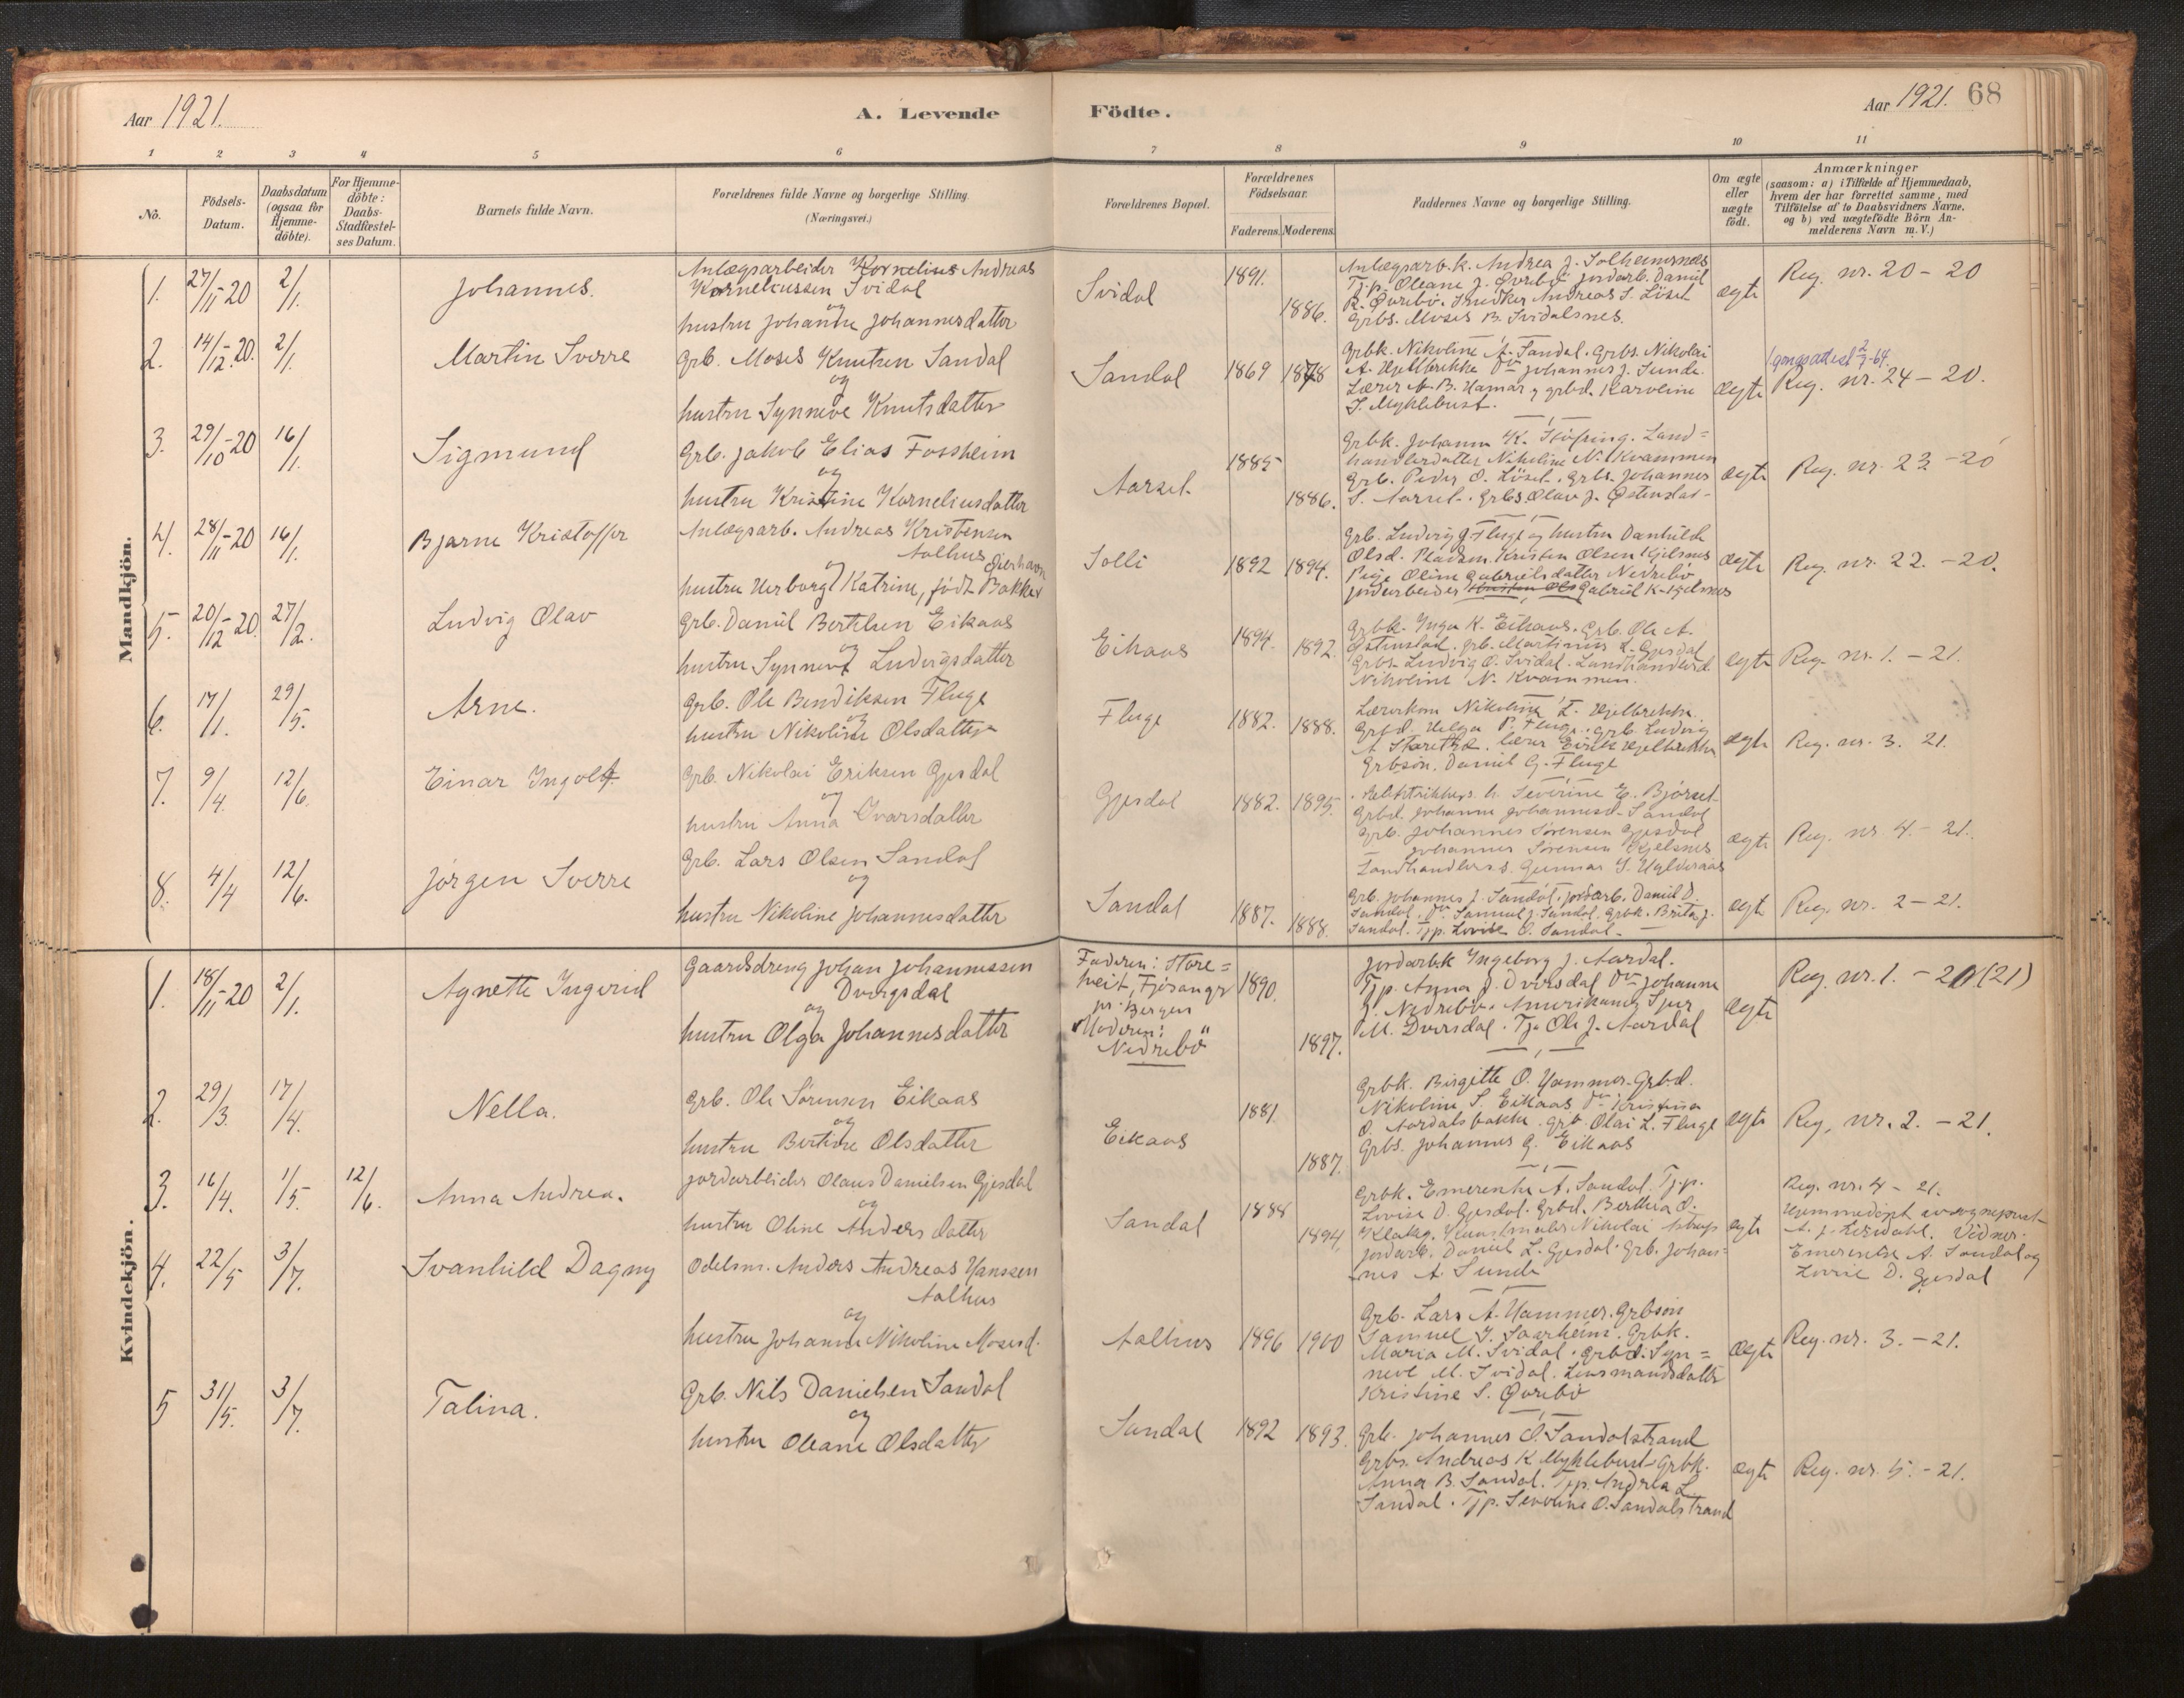 Aar 1921.
A. Levende
Födte.
Aar 1921. 68
1 2 3 4 5 6 7 8 9 10 11
No.
Födsels-
Datum.
Daabsdatum
(ogsaa for
Hjemme-
döbte).
For Hjemme-
döbte:
Daabs-
Stadfæstel-
ses Datum.
Barnets fulde Navn.
Forældrenes fulde Navne og borgerlige Stilling.
(Næringsvei.)
Forældrenes Bopæl.
Forældrenes
Födselsaar.
Faderens. Moderens.
Faddernes Navne og borgerlige Stilling.
Om ægte
eller
uægte
födt.
Anmærkninger
(saasom: a) i Tilfælde af Hjemmedaab,
hvem der har forrettet samme, med
Tilföielse af to Daabsvidners Navne.
og b) ved uægtefödte Börn An-
melderens Navn m. V.)
Mandkjön.
1. 27/11-20 2/1. Johannes.
Anlægsarbeider Kornelius Andreas
Korneliussen Svidal
og
hustru Johanne Johannesdatter
Svidal 1891. 1886.
Anlægsarb.k. Andrea J. Solheimsnes
Tjp. Oleane J. Øvrebö jordarb. Daniel
R. Øvrebö. Snedker Andreas S. Löset
Grbs. Moses B. Svidalsnes.
ægte Reg. nr. 20-20
2. 14/12-20. 2/1. Martin Sverre
Grb. Moses Knutsen Sandal
og
hustru Synneve Knutsdatter
Sandal 1869 1878
Grbk. Nikoline A. Sandal. Grbs. Nikolai
A. Hjelbrekke Johannes J. Sunde.
Lærer A. B. Hamar, grbd. Karoline
S. Myklebust.
ægte Reg. nr. 24-20.
3. 29/10-20 16/1. Sigmund
Grb. Jakob Elias Fossheim
og
hustru Kristine Korneliusdatter
Aarset 1885 1886.
Grbk. Johanne K. Støfring. Land=
handlerdatter Nikoline N. Kvammen
Grb. Peder O. Löset. Grbs. Johannes
S. Aarset. Grbs Olav J. Østenstad-
ægte Reg. nr. 23-20
4. 28/11-20 16/1. Bjarne Kristoffer
Anlægsarb. Andreas Kristensen
Aalhus
og
hustru Herborg Katrine, födt Bakke
Solli 1892 1894.
Grb. Ludvig J. Fluge og hustru Danhilde
Olsd. Kristen Olsen Kjelsnes
Pige Oline Gabrielsdatter Nedrebö
jordarbeider Gabriel K. Kjelsnes
ægte Reg. nr. 22.-20.
5. 20/12-20. 27/2. Ludvig Olav
Grb. Daniel Bertelsen Eikaas
og
hustru Synneve Ludvigsdatter
Eikaas 1894. 1892.
Grbk. Inga K. Eikaas. Grb. Ole A.
Østenstad. grb. Martinus L. Gjesdal
Grbs. Ludvig O. Svidal. Landhandlerd.
Nikoline N. Kvammen.
ægte Reg. nr. 1.-21.
6. 17/1. 29/5. Arne.
Grb. Ole Bendiksen Fluge
og
hustru Nikoline Olsdatter
Fluge 1882. 1888.
Lærerkone Nikoline T. Hjelbrekke.
Grbd. Helga P. Fluge. grb. Ludvig
lærer Eirik Hjelbrekke
Grbsön. Daniel G. Fluge
ægte Reg. nr. 3. 21.
7. 9/4. 12/6. Einar Ingolf.
Grb. Nikolai Eriksen Gjesdal
og
hustru Anna Ivarsdatter
Gjesdal 1882. 1895.
Severine E. Bjørset
Grbd. Johanne Johannesd. Sandal
Grb. Johannes Sörensen Gjesdal
Johannes Sörensen Kjelsnes
Landhandlers. Gunnar
ægte Reg. nr. 4.-21.
8. 4/4 12/6. Jörgen Sverre
Grb. Lars Olsen Sandal
og
hustru Nikoline Johannesdatter
Sandal 1887. 1888.
Grb. Johannes J. Sandal, jordarb. Daniel D.
Sandal. Samuel J. Sandal. Grbk. Brita J.
Sandal. Tjp. Lovise O. Sandal.
ægte Reg. nr. 2-21.
Kvindekjön.
1. 18/11-20 2/1. Agnette Ingerid
Gaardsdreng Johan Johannessen
Dvergsdal
og
hustru Olga Johannesdatter
Faderen: Store=
tveit, Fjösanger
pr. Bergen
Moderen:
Nedrebö
1890. 1897.
jordarb.k Ingeborg J. Aardal.
Tjp. Anna J. Dversdal Johanne
Nedrebö. Amerikaner Sjur
M. Dversdal. Tj. Ole J. Aardal
ægte Reg. nr. 1.-20(21)
2. 29/3. 17/4. Nella.
Grb. Ole Sörensen Eikaas
og
hustru Bertine Olsdatter
Eikaas 1881. 1887.
Grbk. Birgitte O. Hammer. Grbd.
Nikoline S. Eikaas Kristina
O. Aardalsbakke. grb. Olai L. Fluge
Grbs. Johannes G. Eikaas
ægte Reg. nr. 2.-21.
3. 16/4. 1/5. 12/6. Anna Andrea.
jordarbeider Olaus Danielsen Gjesdal
og
hustru Oline Andersdatter
Sandal 1888 1894.
Grbk. Emerentse A. Sandal. Tjp.
Lovise D. Gjesdal. Grbd. Berthea O.
Klakeg. Kunstmaler Nikolai Astrup
jordarb. Daniel L. Gjesdal. Grb. Johan=
nes A. Sunde
ægte Reg. nr. 4-21.
Hjemmedöpt av sogneprest
Vidner:
Emerentse A. Sandal og
Lovise D. Gjesdal
4. 22/5 3/7. Svanhild Dagny
Odelsm. Anders Andreas Hanssen
Aalhus
og
hustru Johanne Nikoline Mosesd.
Aalhus 1896 1900
Grb. Lars A. Hammer. Grbsön
Samuel J. Saarheim. Grbk.
Maria M. Svidal. grbd. Syn=
neve M. Svidal. Lensmandsdatter
Kristine S. Øvrebö
ægte Reg. nr. 3.-21.
5 31/5. 3/7. Talina.
Grb. Nils Danielsen Sandal
og
hustru Oleane Olsdatter
Sandal 1892 1893.
Grb. Johannes O. Sandalstrand
Grbs. Andreas K. Myklebust. Grbk.
Anna B. Sandal. Tjp. Andrea L.
Sandal. Tjp. Severine O. Sandalstrand
ægte Reg. nr. 5.-21.